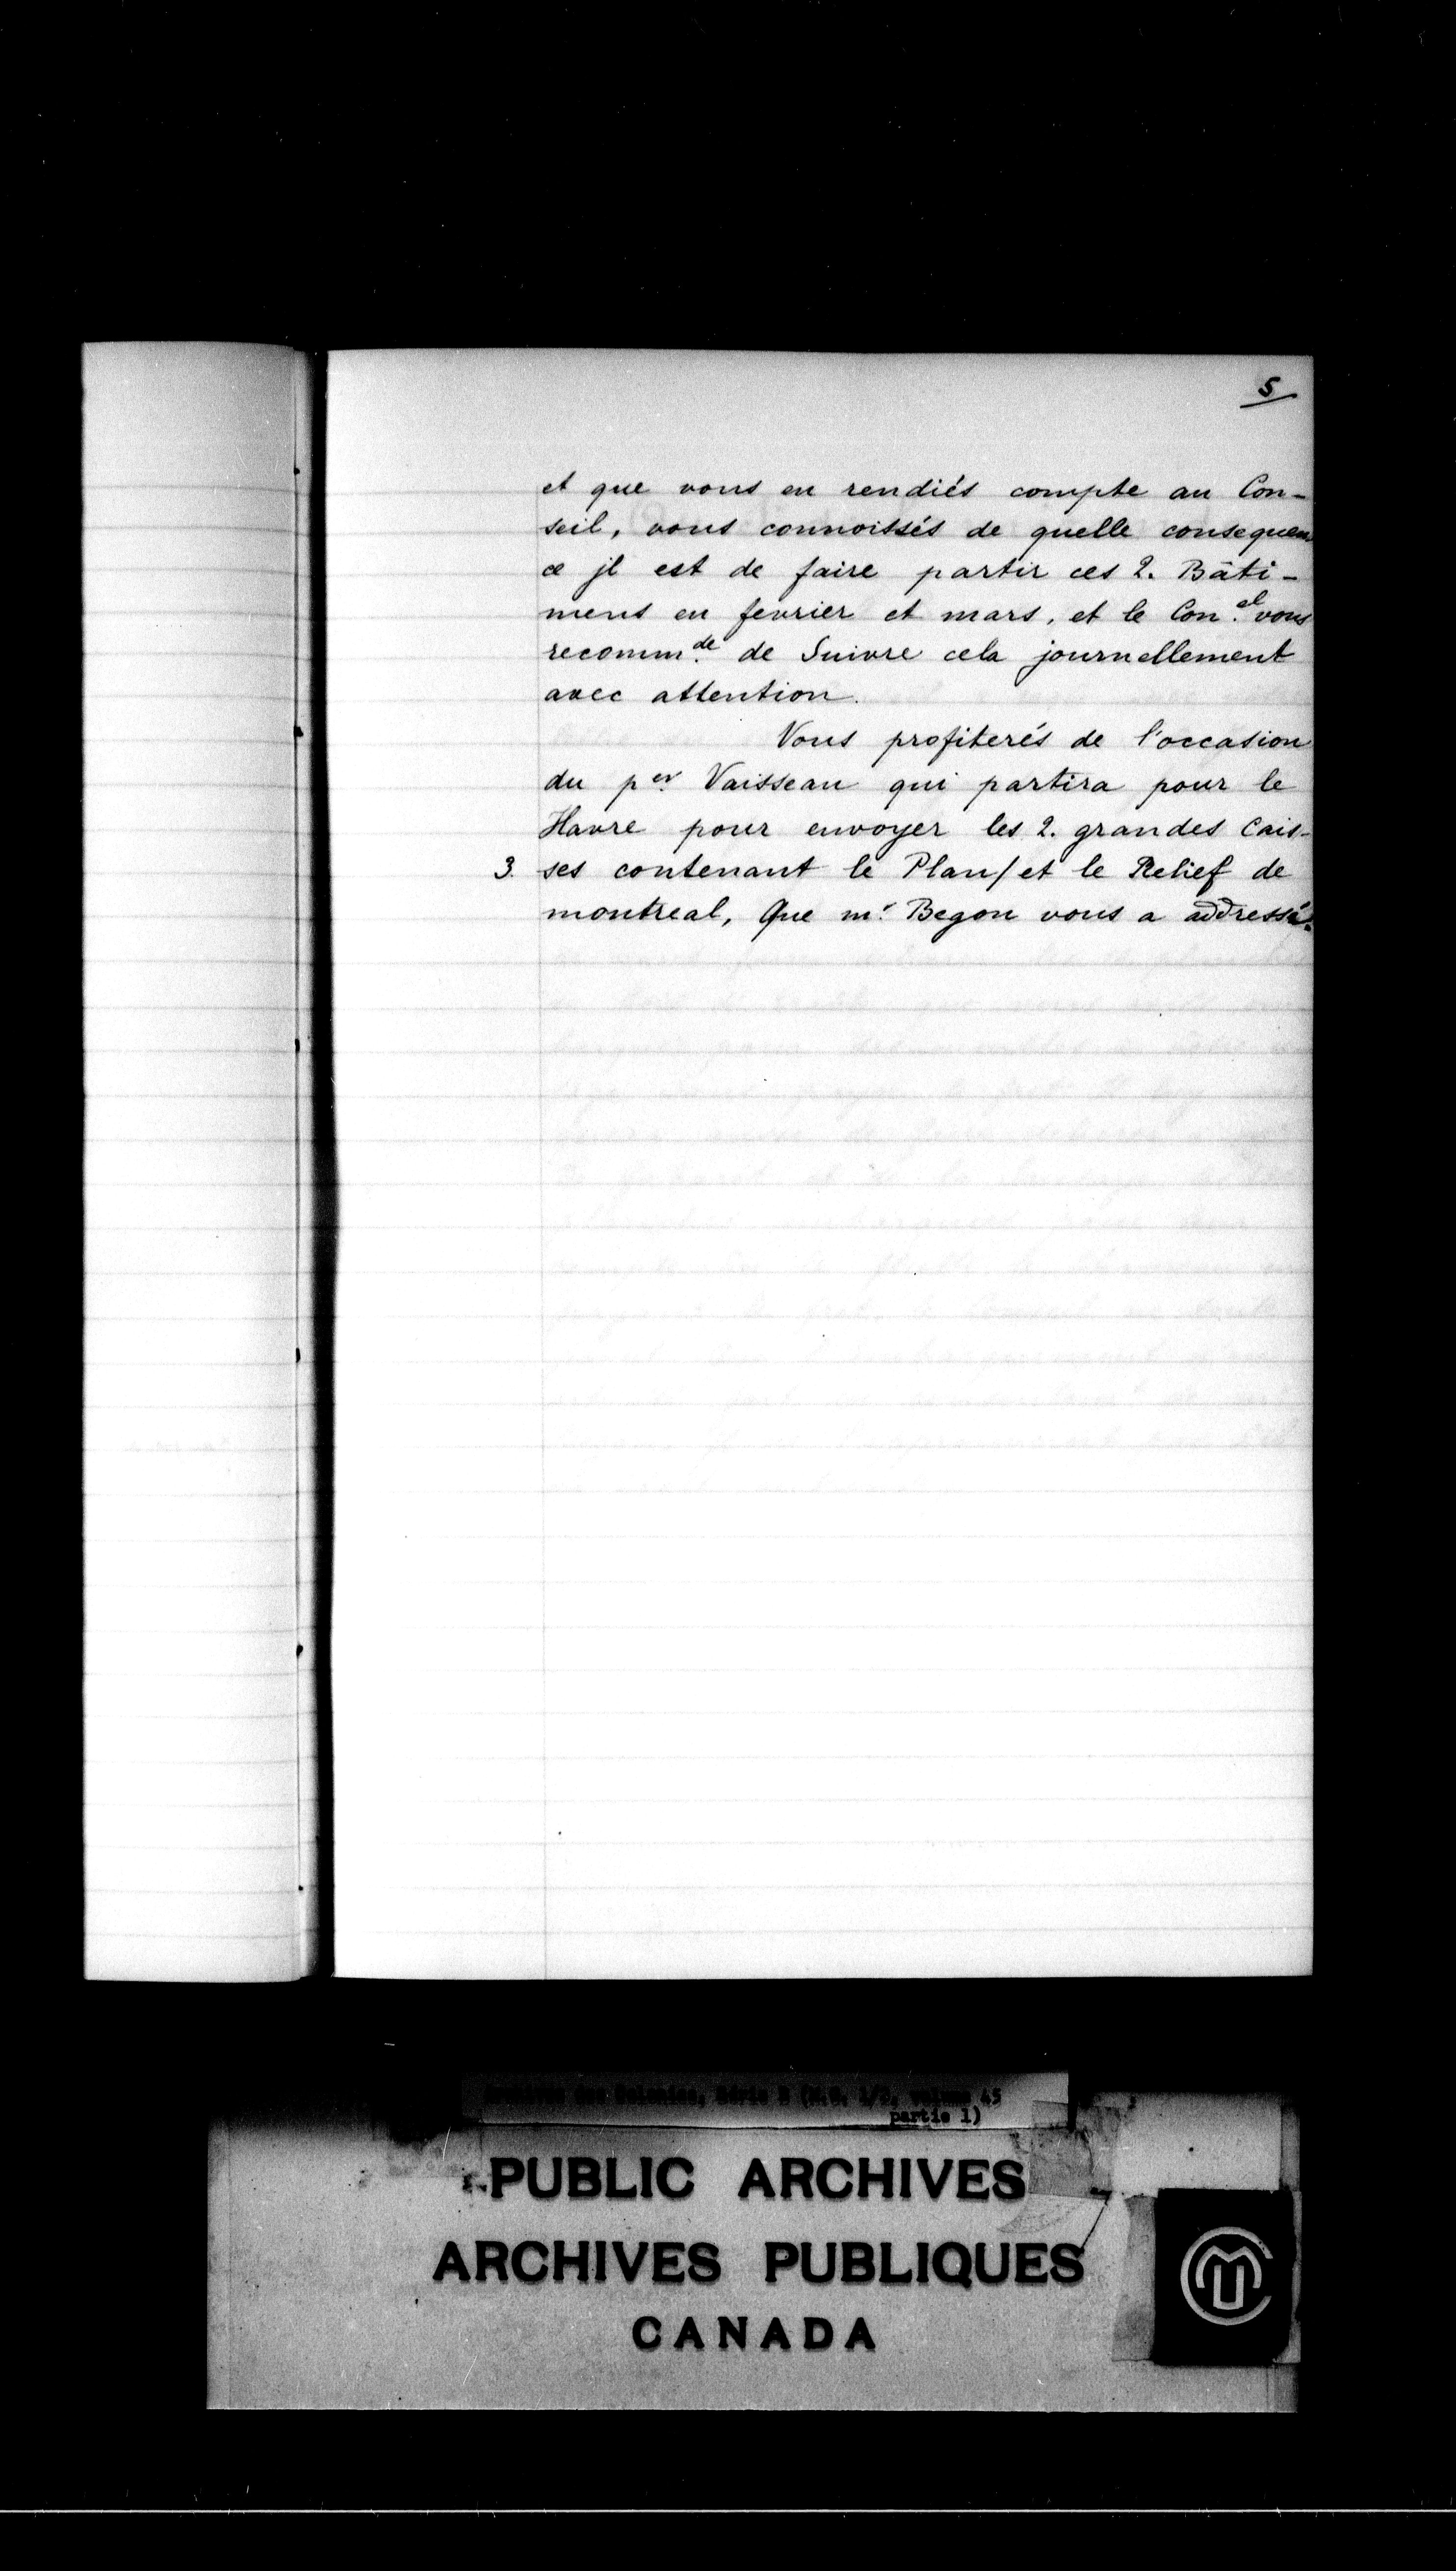 5
et que vous en rendiés compte au Con-
seil, vous connoissés de quelle consequen
ce jl est de faire partir ces 2. Bâti-
mens en fevrier et mars, et le Con.el vous
recomm.de de Suivre cela journellement
avec attention.
Vous profiterés de l'occasion
du p.er Vaisseau qui partira pour le
Havre pour envoyer les 2. grandes Cais-
3. ses contenant le Plan/et le Relief de
montreal, Que m.r Begon vous a addressé.
Colonies, Série B (M.G. 1/2, volume 45
partie 1)
PUBLIC ARCHIVES
ARCHIVES PUBLIQUES
CANADA